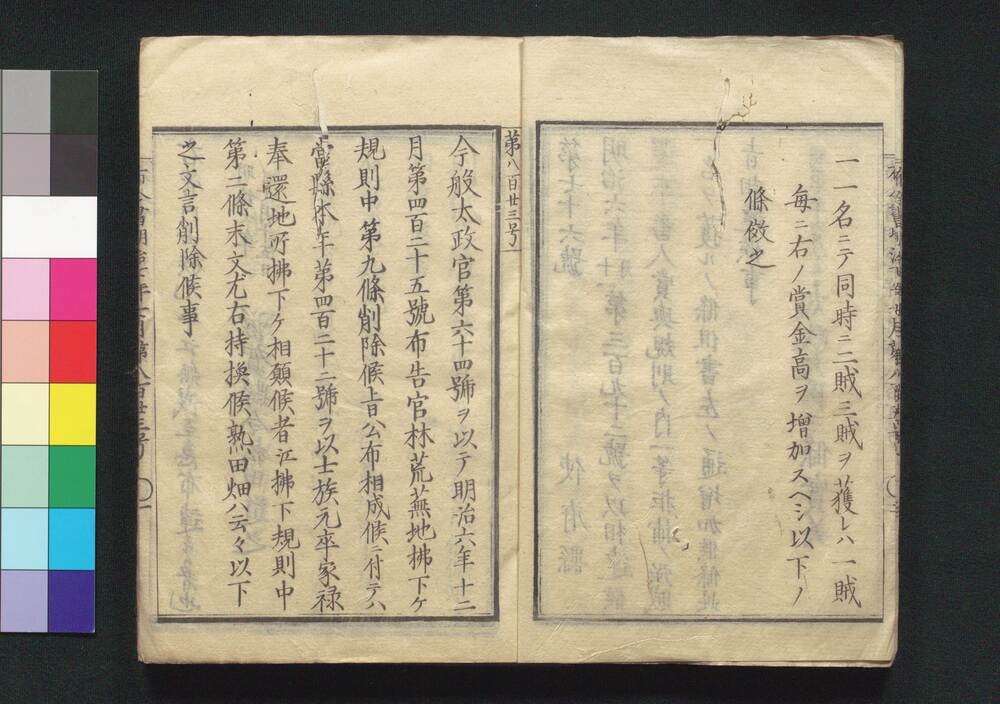 一一名ニテ同時ニ二賊三賊ヲ獲レハ一賊
毎ニ右ノ賞金高ヲ増加スヘシ以下ノ
條傚之
第八百廿三号
今般太政官第六十四號ヲ以テ明治六年十二
月第四百二十五號布告官林荒蕪地拂下ケ
規則中第九條削除候旨公布相成候ニ付テハ
當縣本年第四百二十二號ヲ以士族元卒家禄
奉還地所拂下ケ相願候者江拂下規則中
第二條末文尤右持換候熟田畑ハ云々以下
之文言削除候事